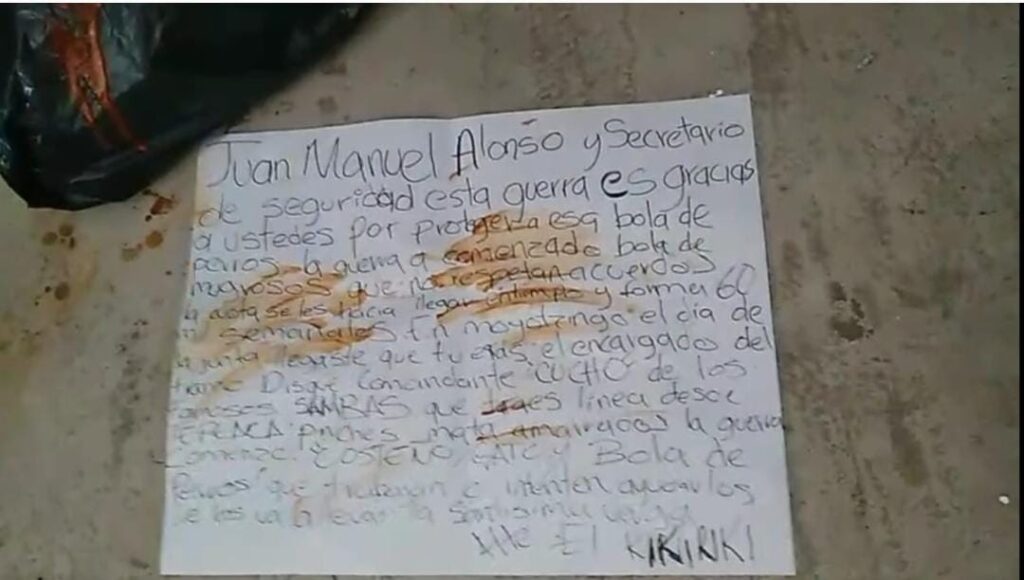 Juan Manuel Alonso y Secretario
de seguridad esta guerra es gracias
a ustedes por protegerla esa bola de
perros la guerra a comenzado bola de
mugrosos que no respetan acuerdos
la cuota se les hacia llegar entiempo y forma 60
mil semanales. En moyotzingo el día de
la junta llegaste que tu eras el encalgado del
Disque Comandante "CUCHO" de los
famosos SAMBRAS que traes línea desce
TEPEACA pinches mata amarrados la guerra
Comenzo COSTEÑO, GATO y Bola de
Perros que trabajan e intenten
se los va a llevar la Santisima
Atte El KIKIRIKI